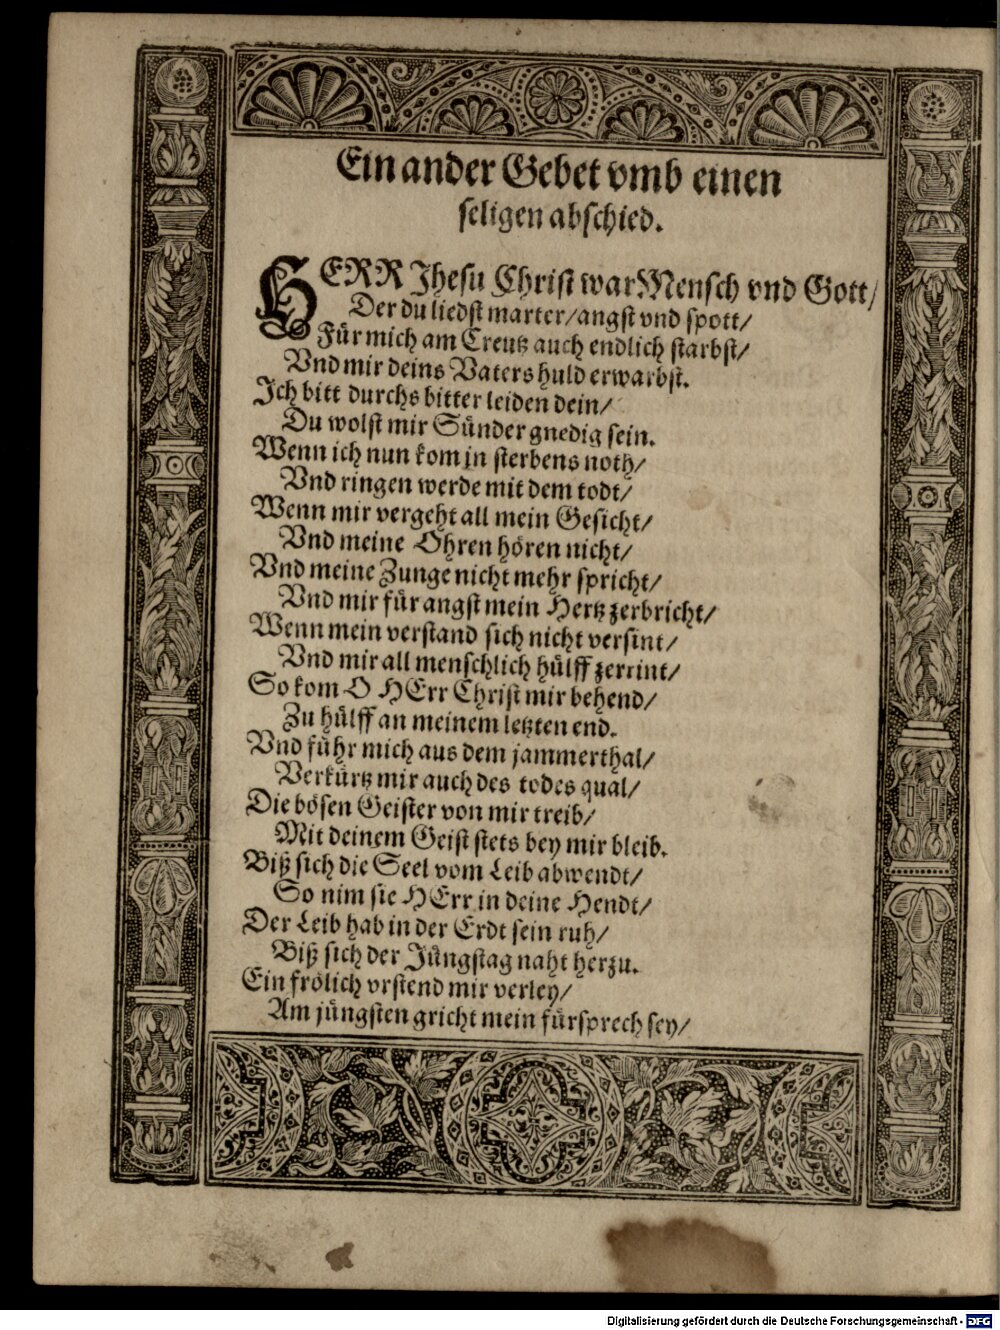 Ein ander Gebet vmb einen
seligen abschied.
HERR Jhesu Christ war Mensch vnd Gott/
Der du liedst marter/angst vnd spott/
Für mich am Creutz auch endlich starbst/
Vnd mir deins Vaters huld erwarbst.
Ich bitt durchs bitter leiden dein/
Du wolst mir Sünder gnedig sein.
Wenn ich nun kom in sterbens noth/
Vnd ringen werde mit dem todt/
Wenn mir vergeht all mein Gesicht/
Vnd meine Ohren hören nicht/
Vnd meine Zunge nicht mehr spricht/
Vnd mir für angst mein Hertz zerbricht/
Wenn mein verstand sich nicht versint/
Vnd mir all menschlich hülff zerrint/
So kom O HErr Christ mir behend/
Zu hülff an meinem letzten end.
Vnd führ mich aus dem jammerthal/
Verkürtz mir auch des todes qual/
Die bösen Geister von mir treib/
Mit deinem Geist stets bey mir bleib.
Biß sich die Seel vom Leib abwendt/
So nim sie HErr in deine Hendt/
Der Leib hab in der Erdt sein ruh/
Biß sich der Jüngstag naht herzu.
Ein frölich vrstend mir verley/
Am jüngsten gricht mein fürsprech sey/
Digitalisierung gefördert durch die Deutsche Forschungsgemeinschaft - DFG